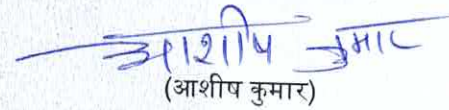 आशीष कुमार
(आशीष कुमार)